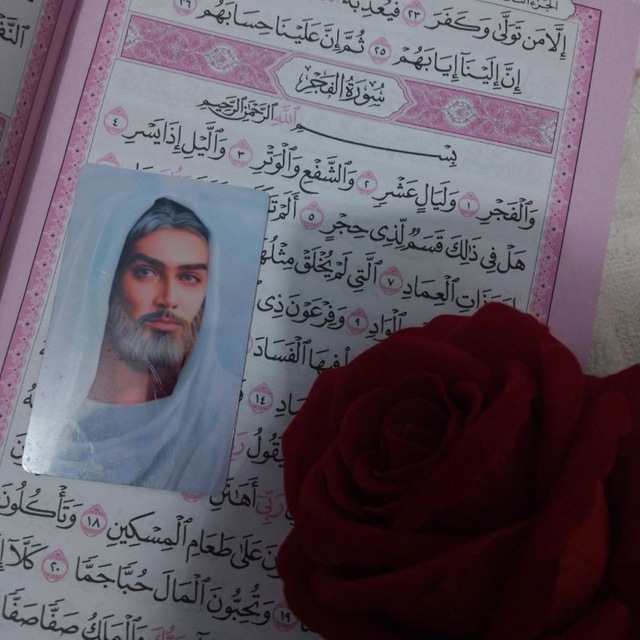 إِلَّا مَن تَوَلَّىٰ وَكَفَرَ ٢٣ فَيُعَذِّبُهُ
إِنَّ إِلَيْنَا إِيَابَهُمْ ٢٥ ثُمَّ إِنَّ عَلَيْنَا حِسَابَهُم ٢٦
سُورَةُ الفَجْرِ
بِسْمِ اللَّهِ الرَّحْمَٰنِ الرَّحِيمِ
وَالْفَجْرِ ١ وَلَيَالٍ عَشْرٍ ٢ وَالشَّفْعِ وَالْوَتْرِ ٣ وَاللَّيْلِ إِذَا يَسْرِ ٤
هَلْ فِي ذَٰلِكَ قَسَمٌ لِّذِي حِجْرٍ ٥ أَلَمْ تَرَ
ذَاتِ الْعِمَادِ ٧ الَّتِي لَمْ يُخْلَقْ مِثْلُهَا
الْوَادِ ٩ وَفِرْعَوْنَ ذِي
فِيهَا الْفَسَادَ
١٤
أَهَانَنِ
عَلَىٰ طَعَامِ الْمِسْكِينِ ١٨ وَتَأْكُلُونَ
١٩ وَتُحِبُّونَ الْمَالَ حُبًّا جَمًّا ٢٠ كَلَّا
وَالْمَلَكُ صَفًّا صَفًّا